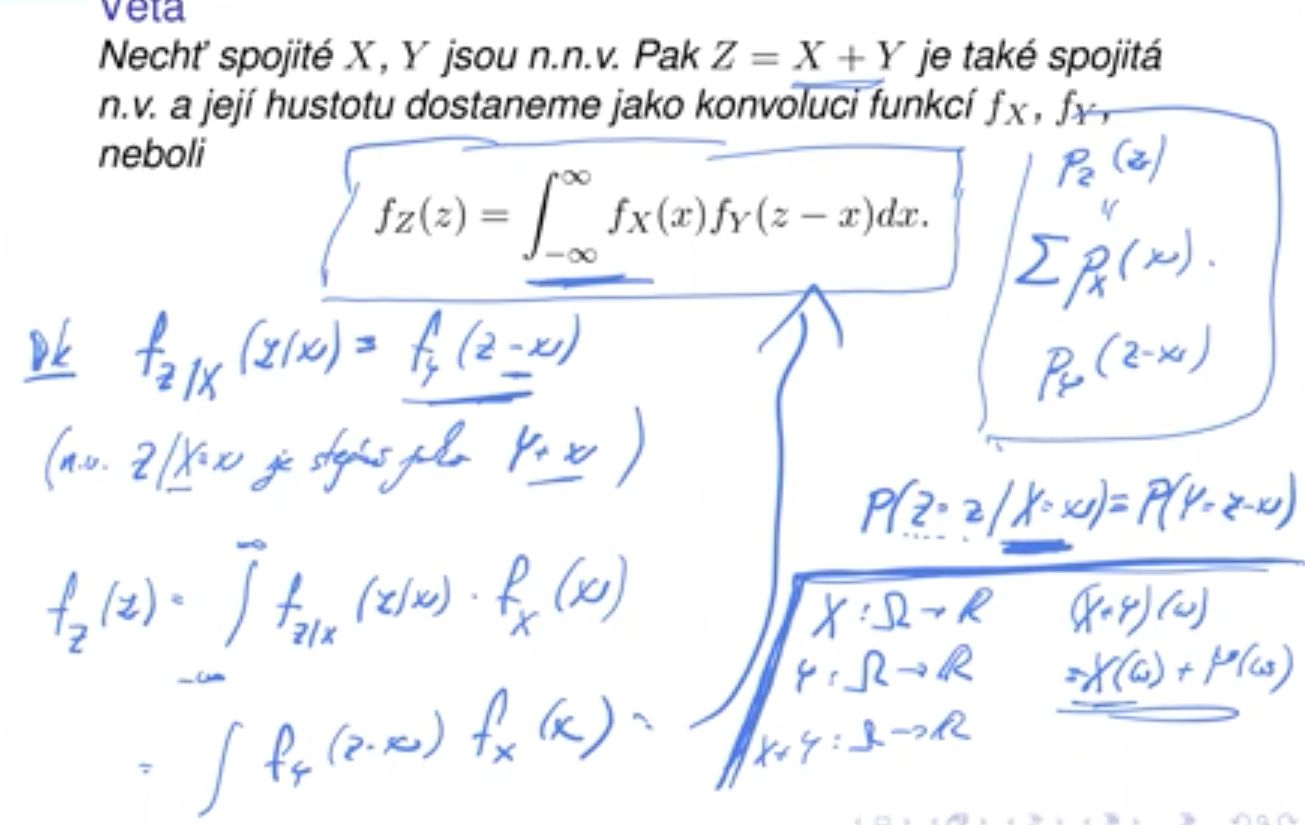 Věta
Nechť spojité X, Y jsou n.n.v. Pak Z = X + Y je také spojitá
n.v. a její hustotu dostaneme jako konvoluci funkcí f_X, f_Y,
neboli
f_Z(z) = ∫_{-∞}^{∞} f_X(x) f_Y(z − x)dx.
P_Z(z)
=
∑ P_X(x) ·
P_Y(z-x)
Dk f_{Z|X}(z|x) = f_Y(z-x)
(n.v. Z|X=x je stejná jako Y+x)
P(Z=z|X=x)=P(Y=z-x)
f_Z(z) = ∫_{-∞}^{∞} f_{Z|X}(z|x) · f_X(x)
= ∫ f_Y(z-x) f_X(x)
X : Ω → R
Y : Ω → R
X+Y : Ω → R
(X+Y)(ω)
= X(ω) + Y(ω)